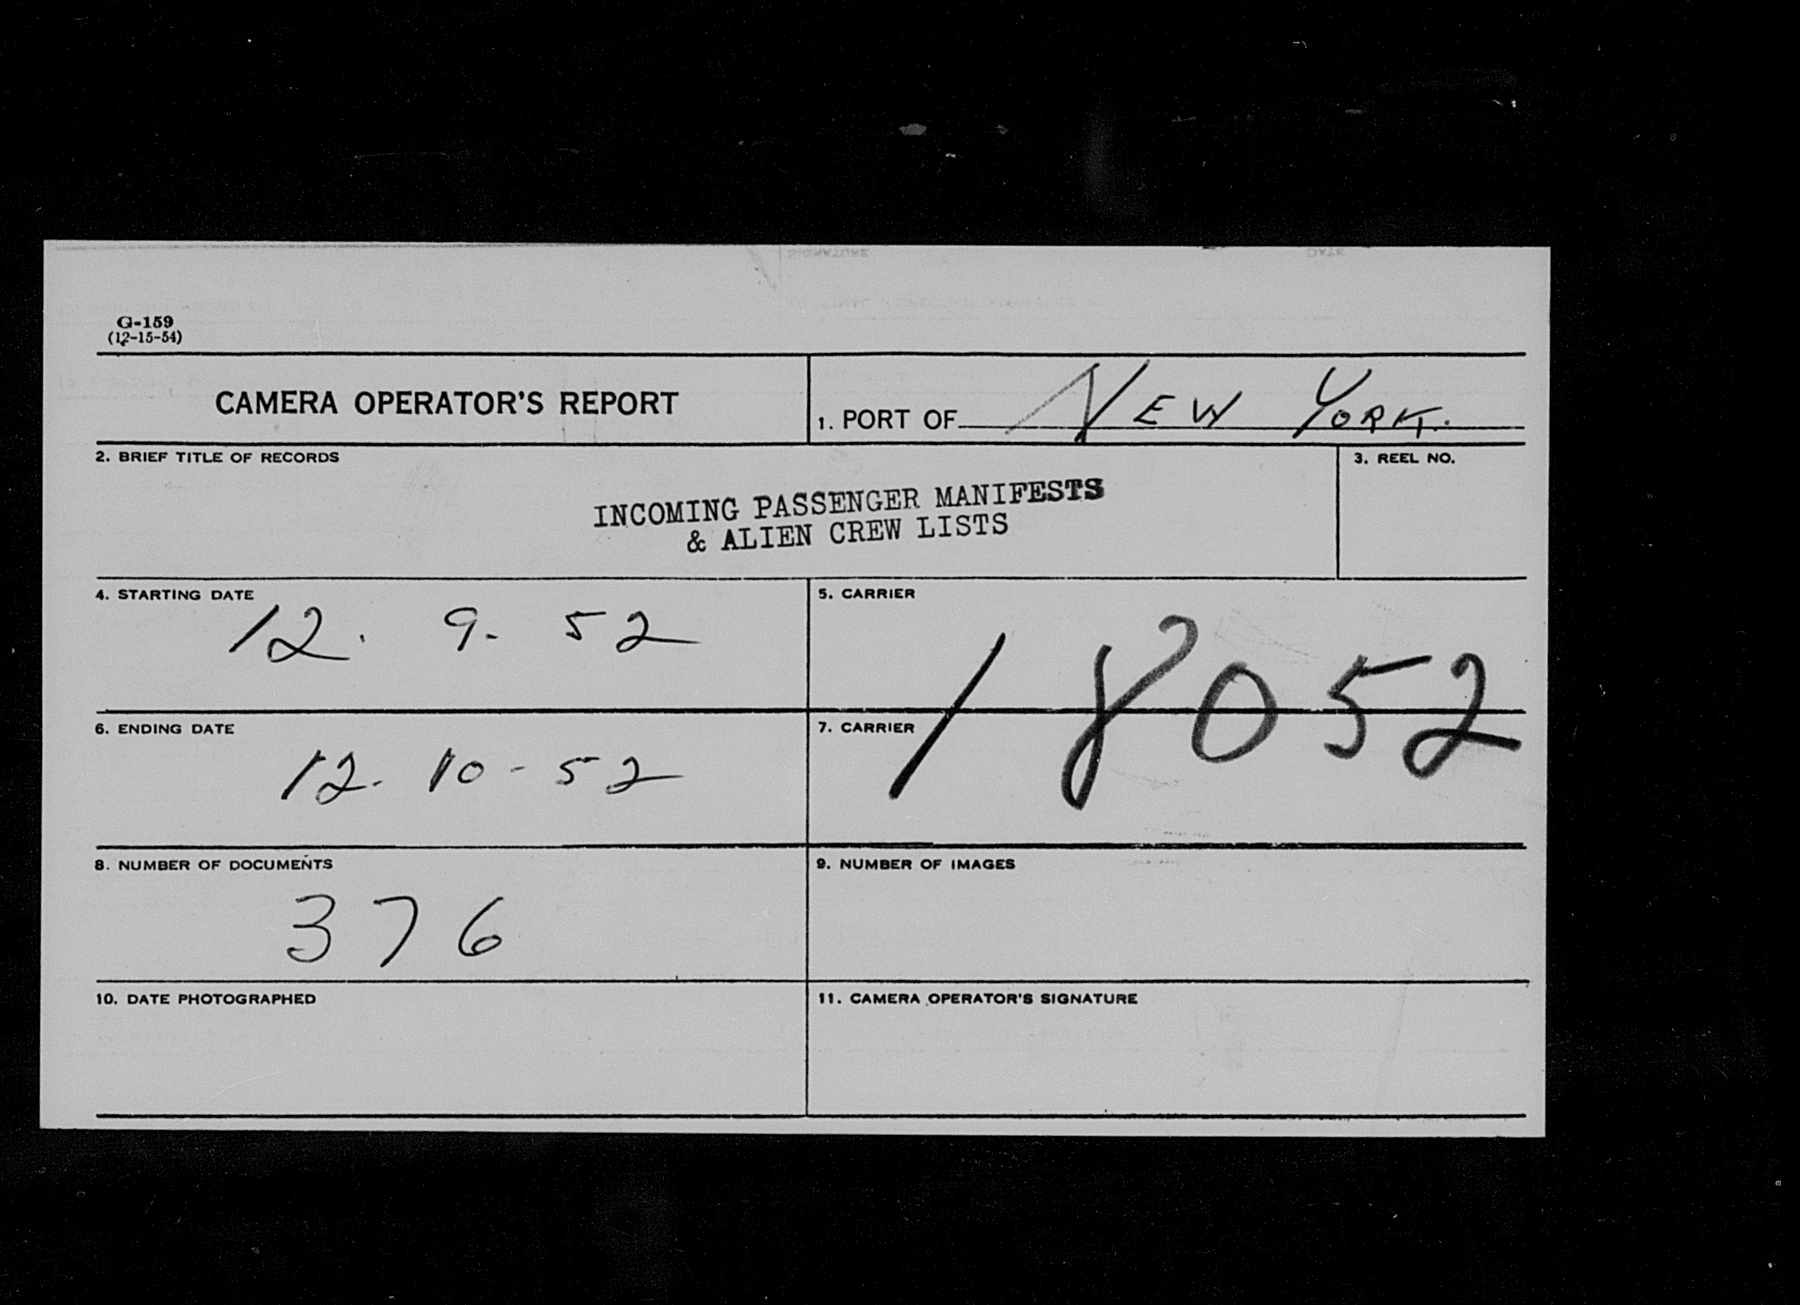 G-159
(12-15-54)
CAMERA OPERATOR'S REPORT
1. PORT OF NEW YORK.
2. BRIEF TITLE OF RECORDS
INCOMING PASSENGER MANIFESTS
& ALIEN CREW LISTS
3. REEL NO.
4. STARTING DATE
12. 9. 52
5. CARRIER
18052
6. ENDING DATE
12. 10 - 52
7. CARRIER
8. NUMBER OF DOCUMENTS
376
9. NUMBER OF IMAGES
10. DATE PHOTOGRAPHED
11. CAMERA OPERATOR'S SIGNATURE